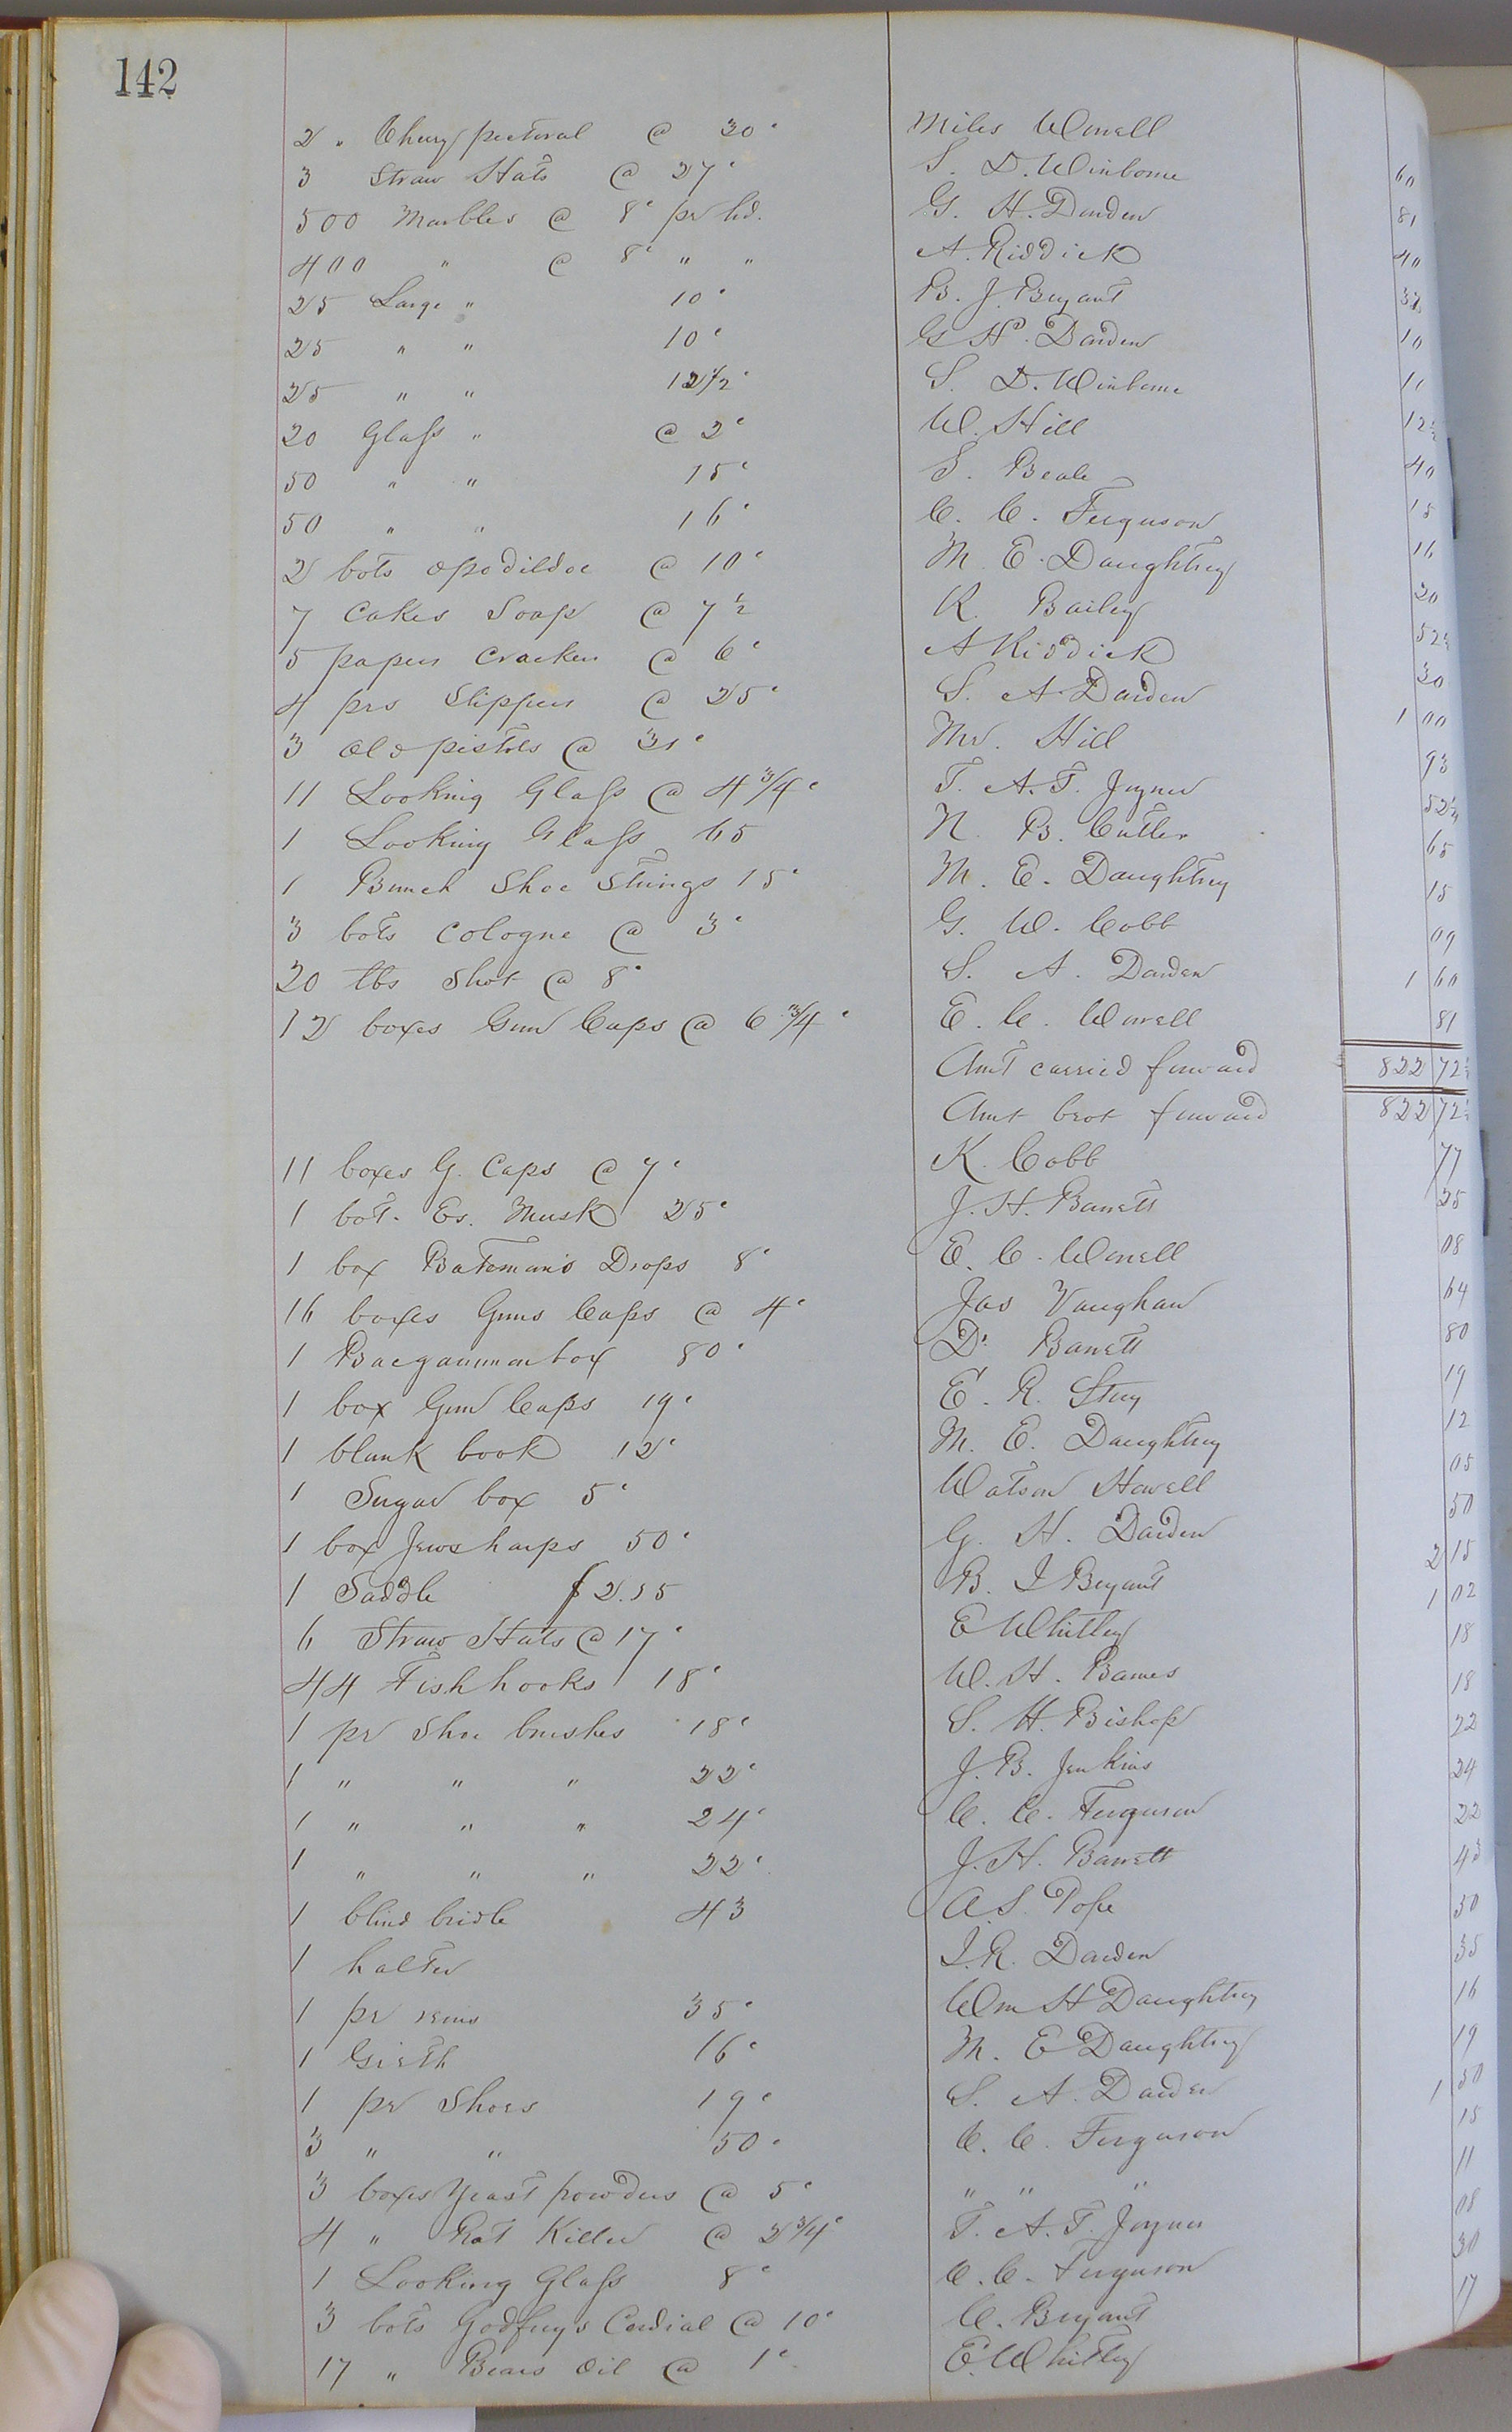 142
2 " Cherry pectoral @ 30c Miles Howell 60
3 Straw Hats @ 27c S. D. Winborne 81
500 Marbles @ 8c pr hd. G. H. Darden 40
400 " @ 8c " " A. Riddick 32
25 Large " 10c B. J. Bryant 10
25 " " 10c G. H. Darden 10
25 " " 12 1/2c S. D. Winborne 12 1/2
20 Glass " @ 2c W. Hill 40
50 " " 15c S. Beale 15
50 " " 16c C. C. Ferguson 16
2 bots opodildoc @ 10c M. E. Daughtrey 20
7 Cakes Soap @ 7 1/2 R. Bailey 52 1/2
5 papers Crackers @ 6c A Riddick 30
4 prs Slippers @ 25c S. A Darden 1 00
3 old pistols @ 31c Mr. Hill 93
11 Looking Glass @ 4 3/4c T. A. T. Joyner 52 1/4
1 Looking Glass 65 N. B. Cutler 65
1 Bunch Shoe Strings 15c M. E. Daughtrey 15
3 bots Cologne @ 3c G. W. Cobb 09
20 lbs Shot @ 8c S. A. Darden 1 60
12 boxes Gun Caps @ 6 3/4c E. C. Howell 81
Amt carried forward 822 72 1/2
Amt brot forward 822 72 1/2
11 boxes G. Caps @ 7c K. Cobb 77
1 bot. Es. Musk 25c J. H. Barrett 25
1 box Bateman's Drops 8c E. C. Howell 08
16 boxes Guns Caps @ 4c Jas Vaughan 64
1 Bacgammon box 80c Dr Barrett 80
1 box Gun Caps 19c E. R. 19
1 blank book 12c M. E. Daughtrey 12
1 Sugar box 5c Watson Howell 05
1 box Jewsharps 50c G. H. Darden 50
1 Saddle $2.15 B. J Bryant 2 15
6 Straw Hats @ 17c E Whitley 1 02
44 Fish hooks 18c W. H. Barnes 18
1 pr Shoe brushes 18c S. H. Bishop 18
1 " " " 22c J. B. Jenkins 22
1 " " " 24c C. C. Ferguson 24
1 " " " 22c J. H. Barrett 22
1 blind bridle 43 A. S. Pope 43
1 halter J. R. Darden 30
1 pr reins 35c Wm H Daughtrey 35
1 Girth 16c M. E Daughtrey 16
1 pr Shoes 19c S. A. Darden 19
3 " " 50c C. C. Ferguson 1 50
3 boxes Yeast powders @ 5c " " " 15
4 " Rat Killer @ 2 3/4c T. A. T. Joyner 11
1 Looking Glass 8c C. C. Ferguson 08
3 bots Godfrey's Cordial @ 10c C. Bryant 30
17 " Bears Oil @ 1c E. Whitley 17